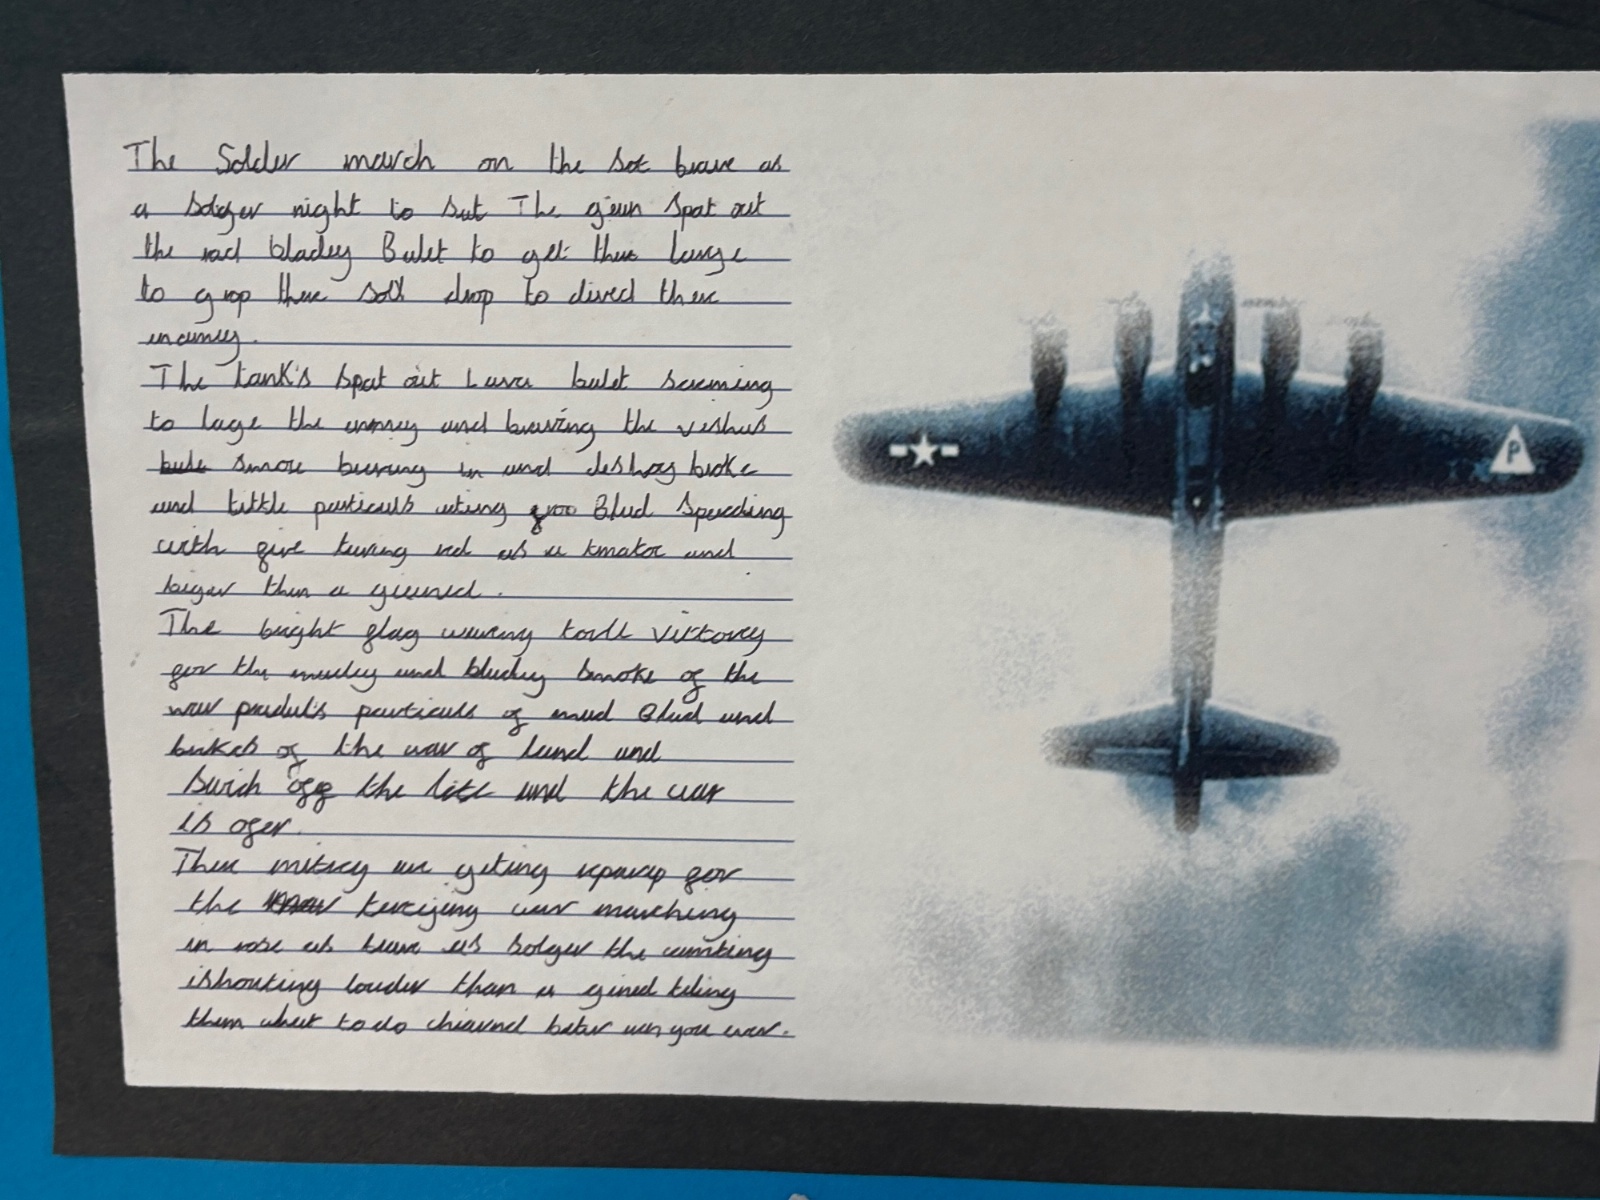 The Solder march on the sot brave as
a solger night to sut The geun spat out
the rad bladey Bulet to get thue large
to grop thue soll drop to dived thue
enamey.
The tank's spat out Lava bulet scerming
to lage the enmey and buring the veshus
smore buring in and deshoy broke
and little particuls ating Blud Speeding
with give turing red as a tmator and
biger then a giuned.
The bright flag waveny tovll Victovey
gor the mudey and bludey smoke of the
war peduls particuls of mud Blud and
bukes of the war of land and
Swich off the lite and the war
is ofer.
Thue mitircy are geting repurap gor
the tereijing war marching
in rose as brave as solger the cumting
ishouting louder than a gined teling
them what to do chiarnd beter wen you war.
P